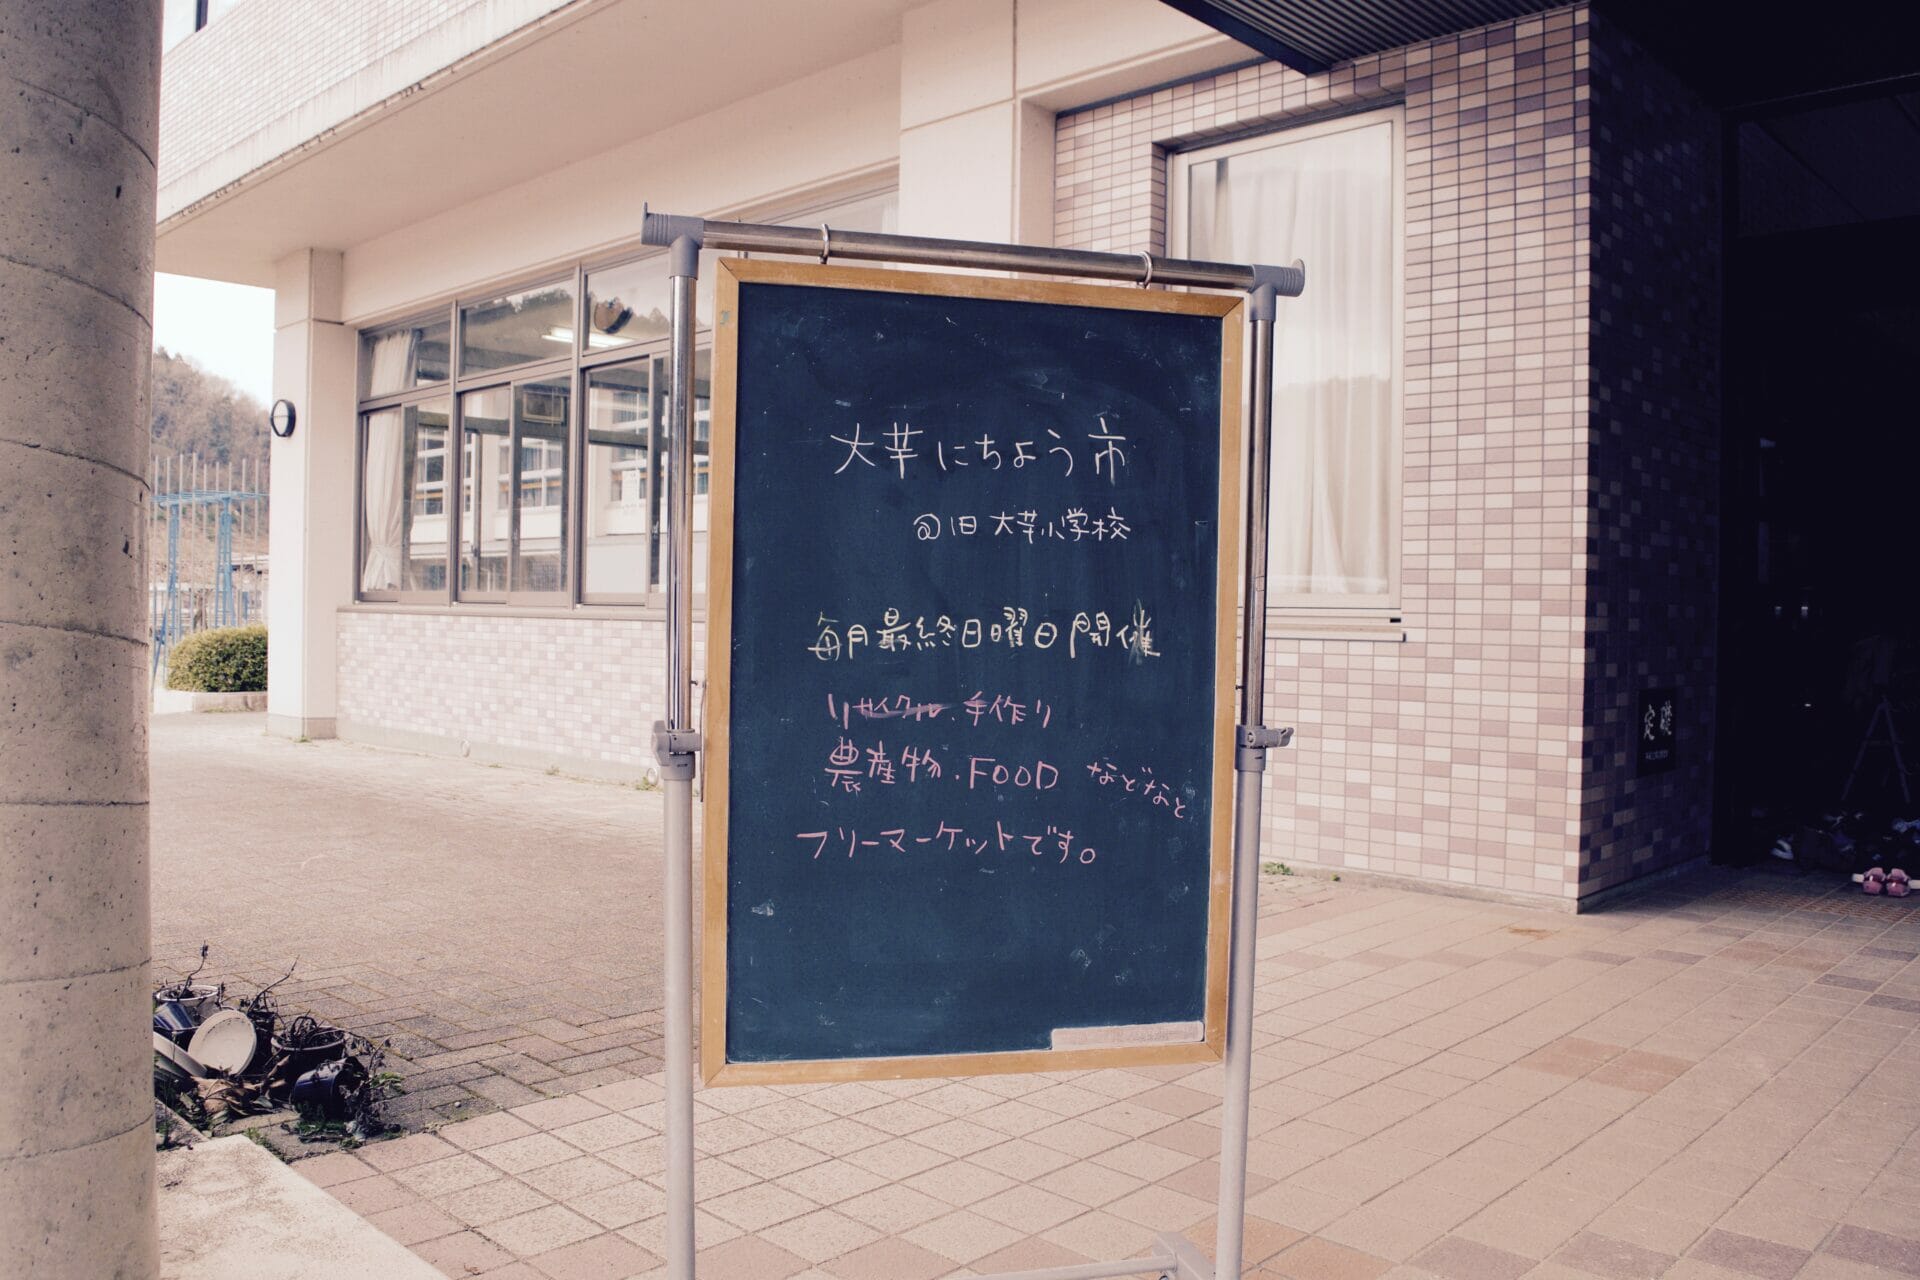 大芋にちよう市
@旧大芋小学校
毎月最終日曜日開催
リサイクル.手作り
農産物.FOOD などなど
フリーマーケットです。
定礎